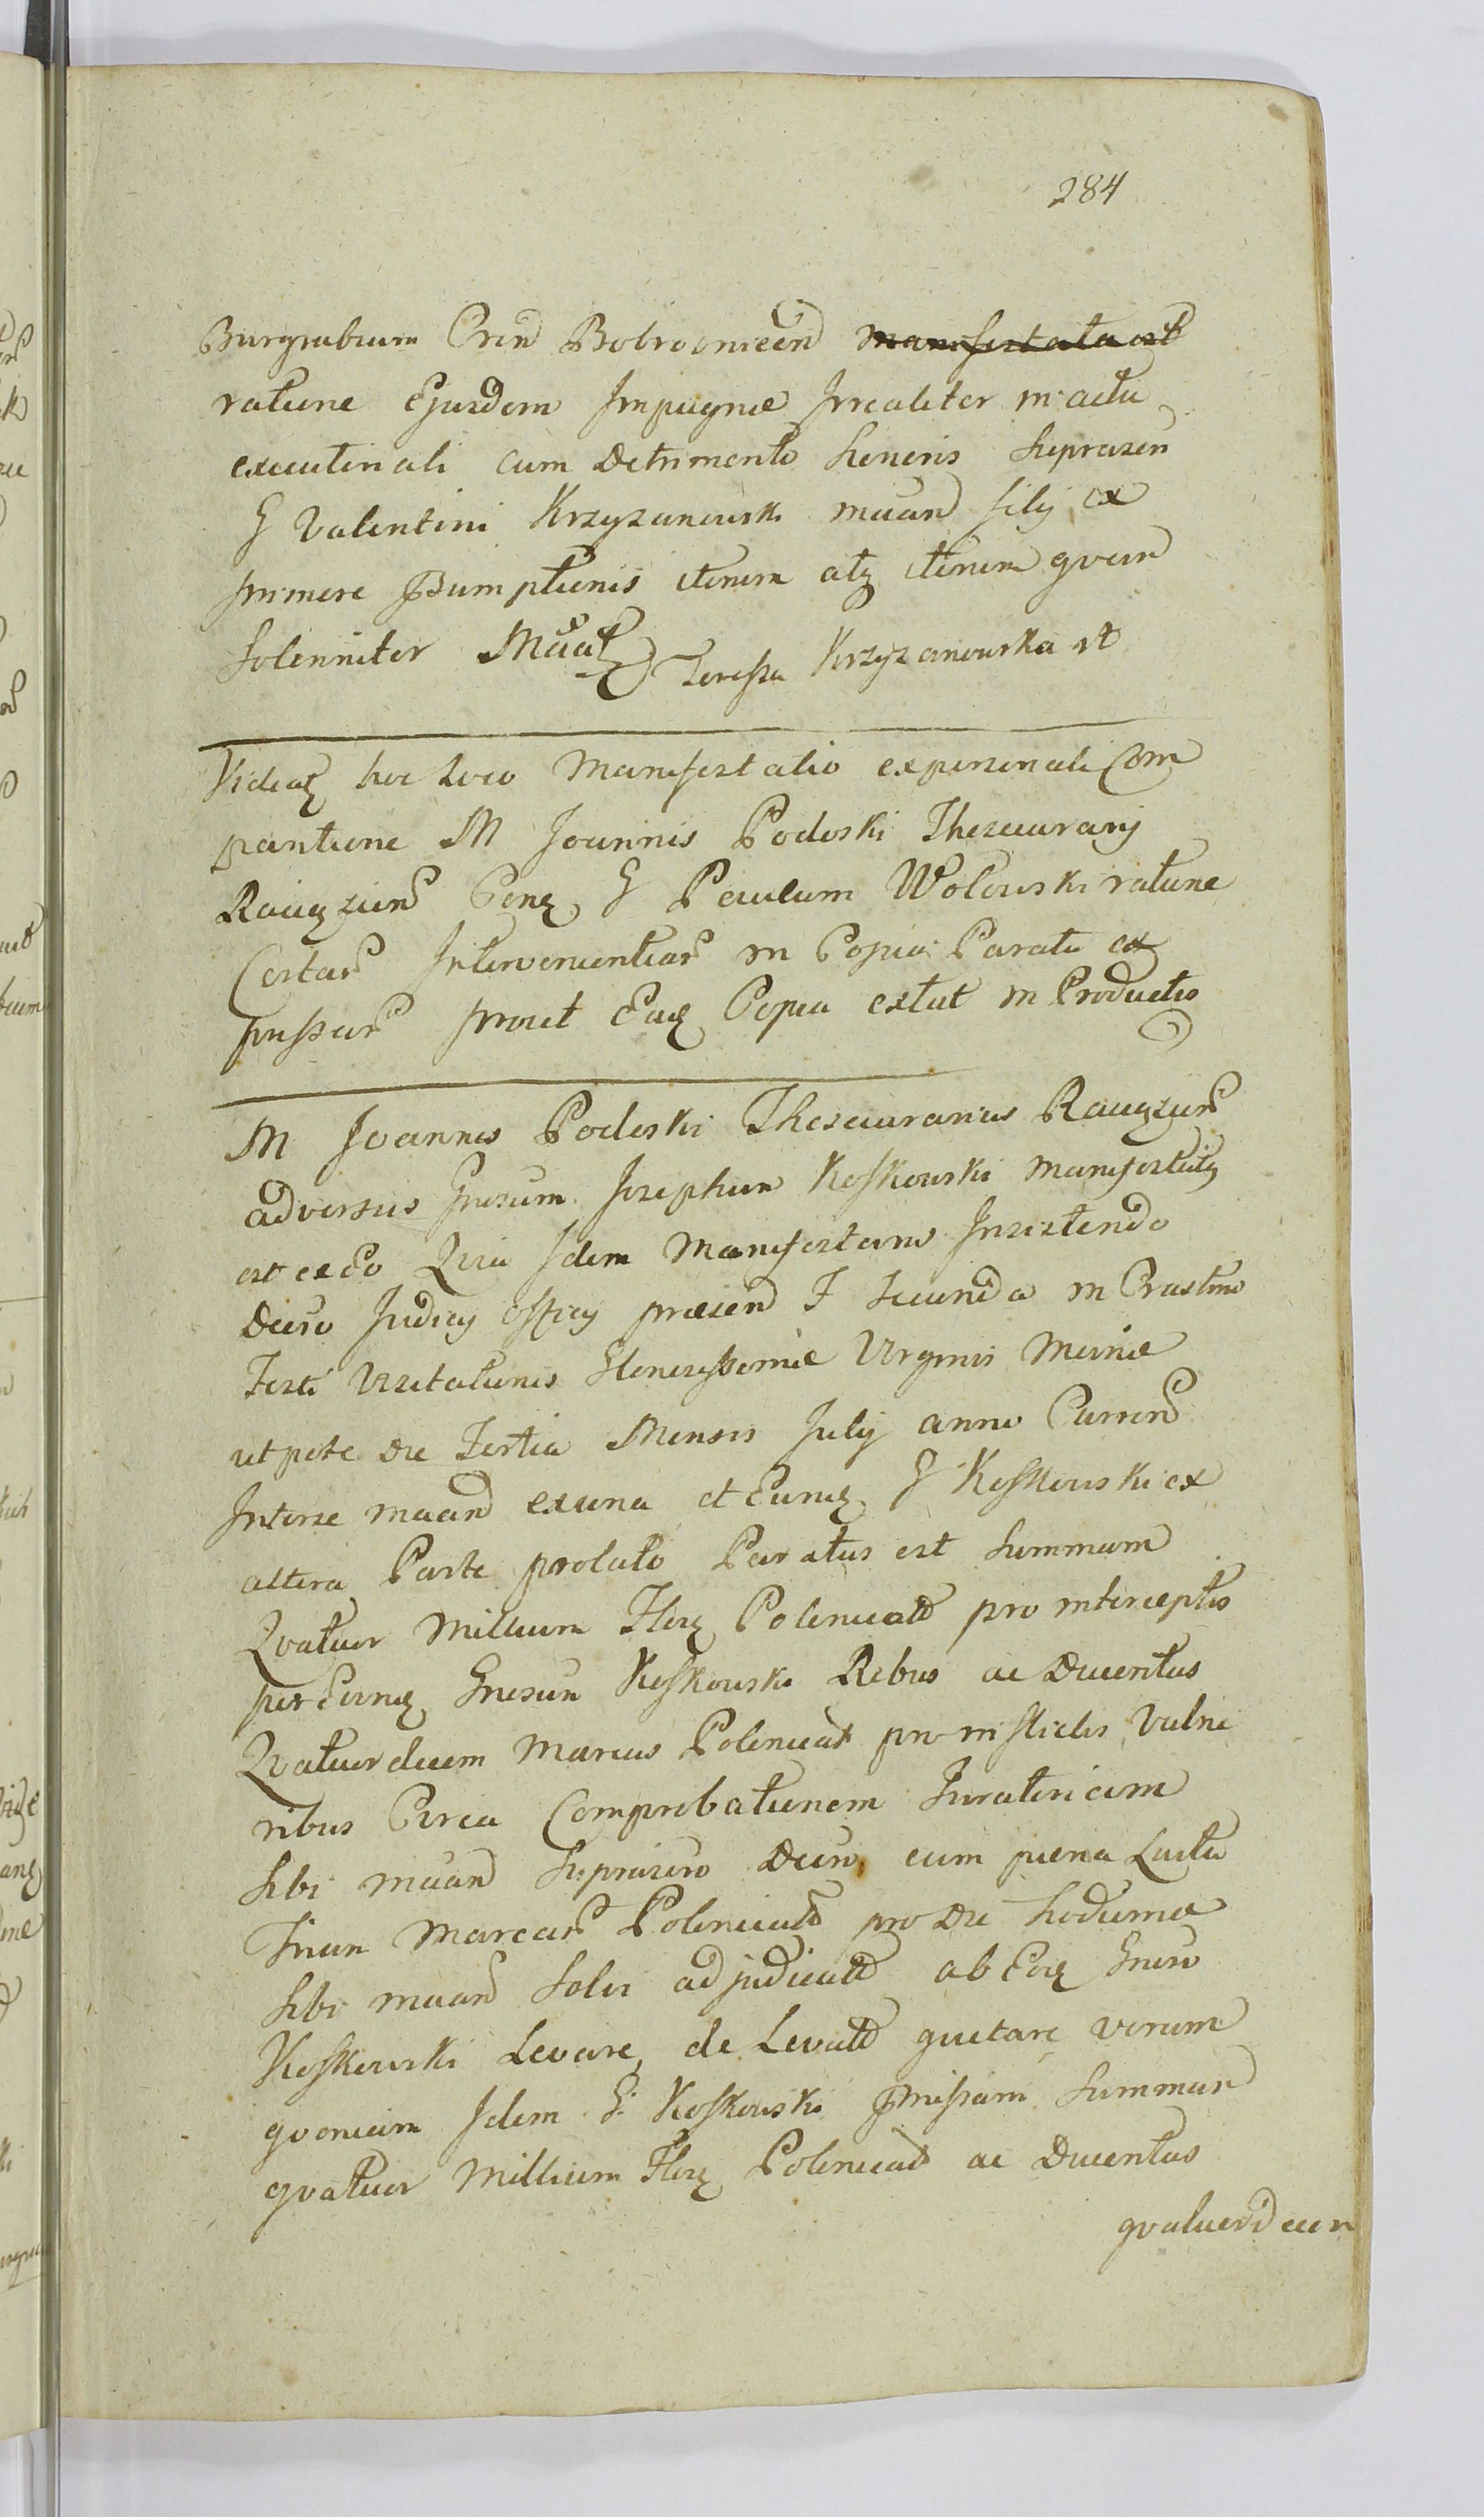 284
Burgrabium Cren Bobrovnicen manifestata est
ratione Ejusdem Impugnæ Irrealiter in actu
executinali cum Detrimento honoris supraten
G Valentini Krzyzanowski maand filij ex
munere sumptionis iterum atq iterum quam
Solenniter Teressa Krzyzanowska st
Videatz hoc Loco Manifestatio ex personali Com
paritione M Joannis Podoski Thesaurarij
Raciąziens G Paulum Wolowski ratione
Certar Intervenientiar in Copia Parata ex
pressar prout Eaq Copia extat in Productis
M Joannes Podoski Thesaurarius Raciązien
adversus Gnosum Josephum Koskowski manifestatq
est ex eo Quia Idem Manifestans Insistendo
Decro Judicij Officij præsen F Secunda in Crastino
Festi Visitationis Honoressimæ Virginis Mariæ
utpote die Tertia Mensis Julij anno Curren
Interse maand ex una et Eumq G Koskowski ex
altera Parte prolato Paratus est Summam
Quatuor Millium Flor Polonicald pro interceptis
per Eumq Gnosum Koskowski Rebus ac Ducentas
Quatuordecem Marcas Polonicat pro inflictis Vulne
ribus Circa Comprobationem Juratoriam
sibi maand Suprasero Decro cum pæna Luctu
Trium Marcar Polonicald pro die hodierna
sibi maand Solvi adjudicatd ab Eoq Gnoso
Koskowski Levare, de Levatd quietare verum
quoniam Idem G. Koskowski pmissam Summam
quatuor Millium Flor Polonicald ac Ducentas
quatuordecem